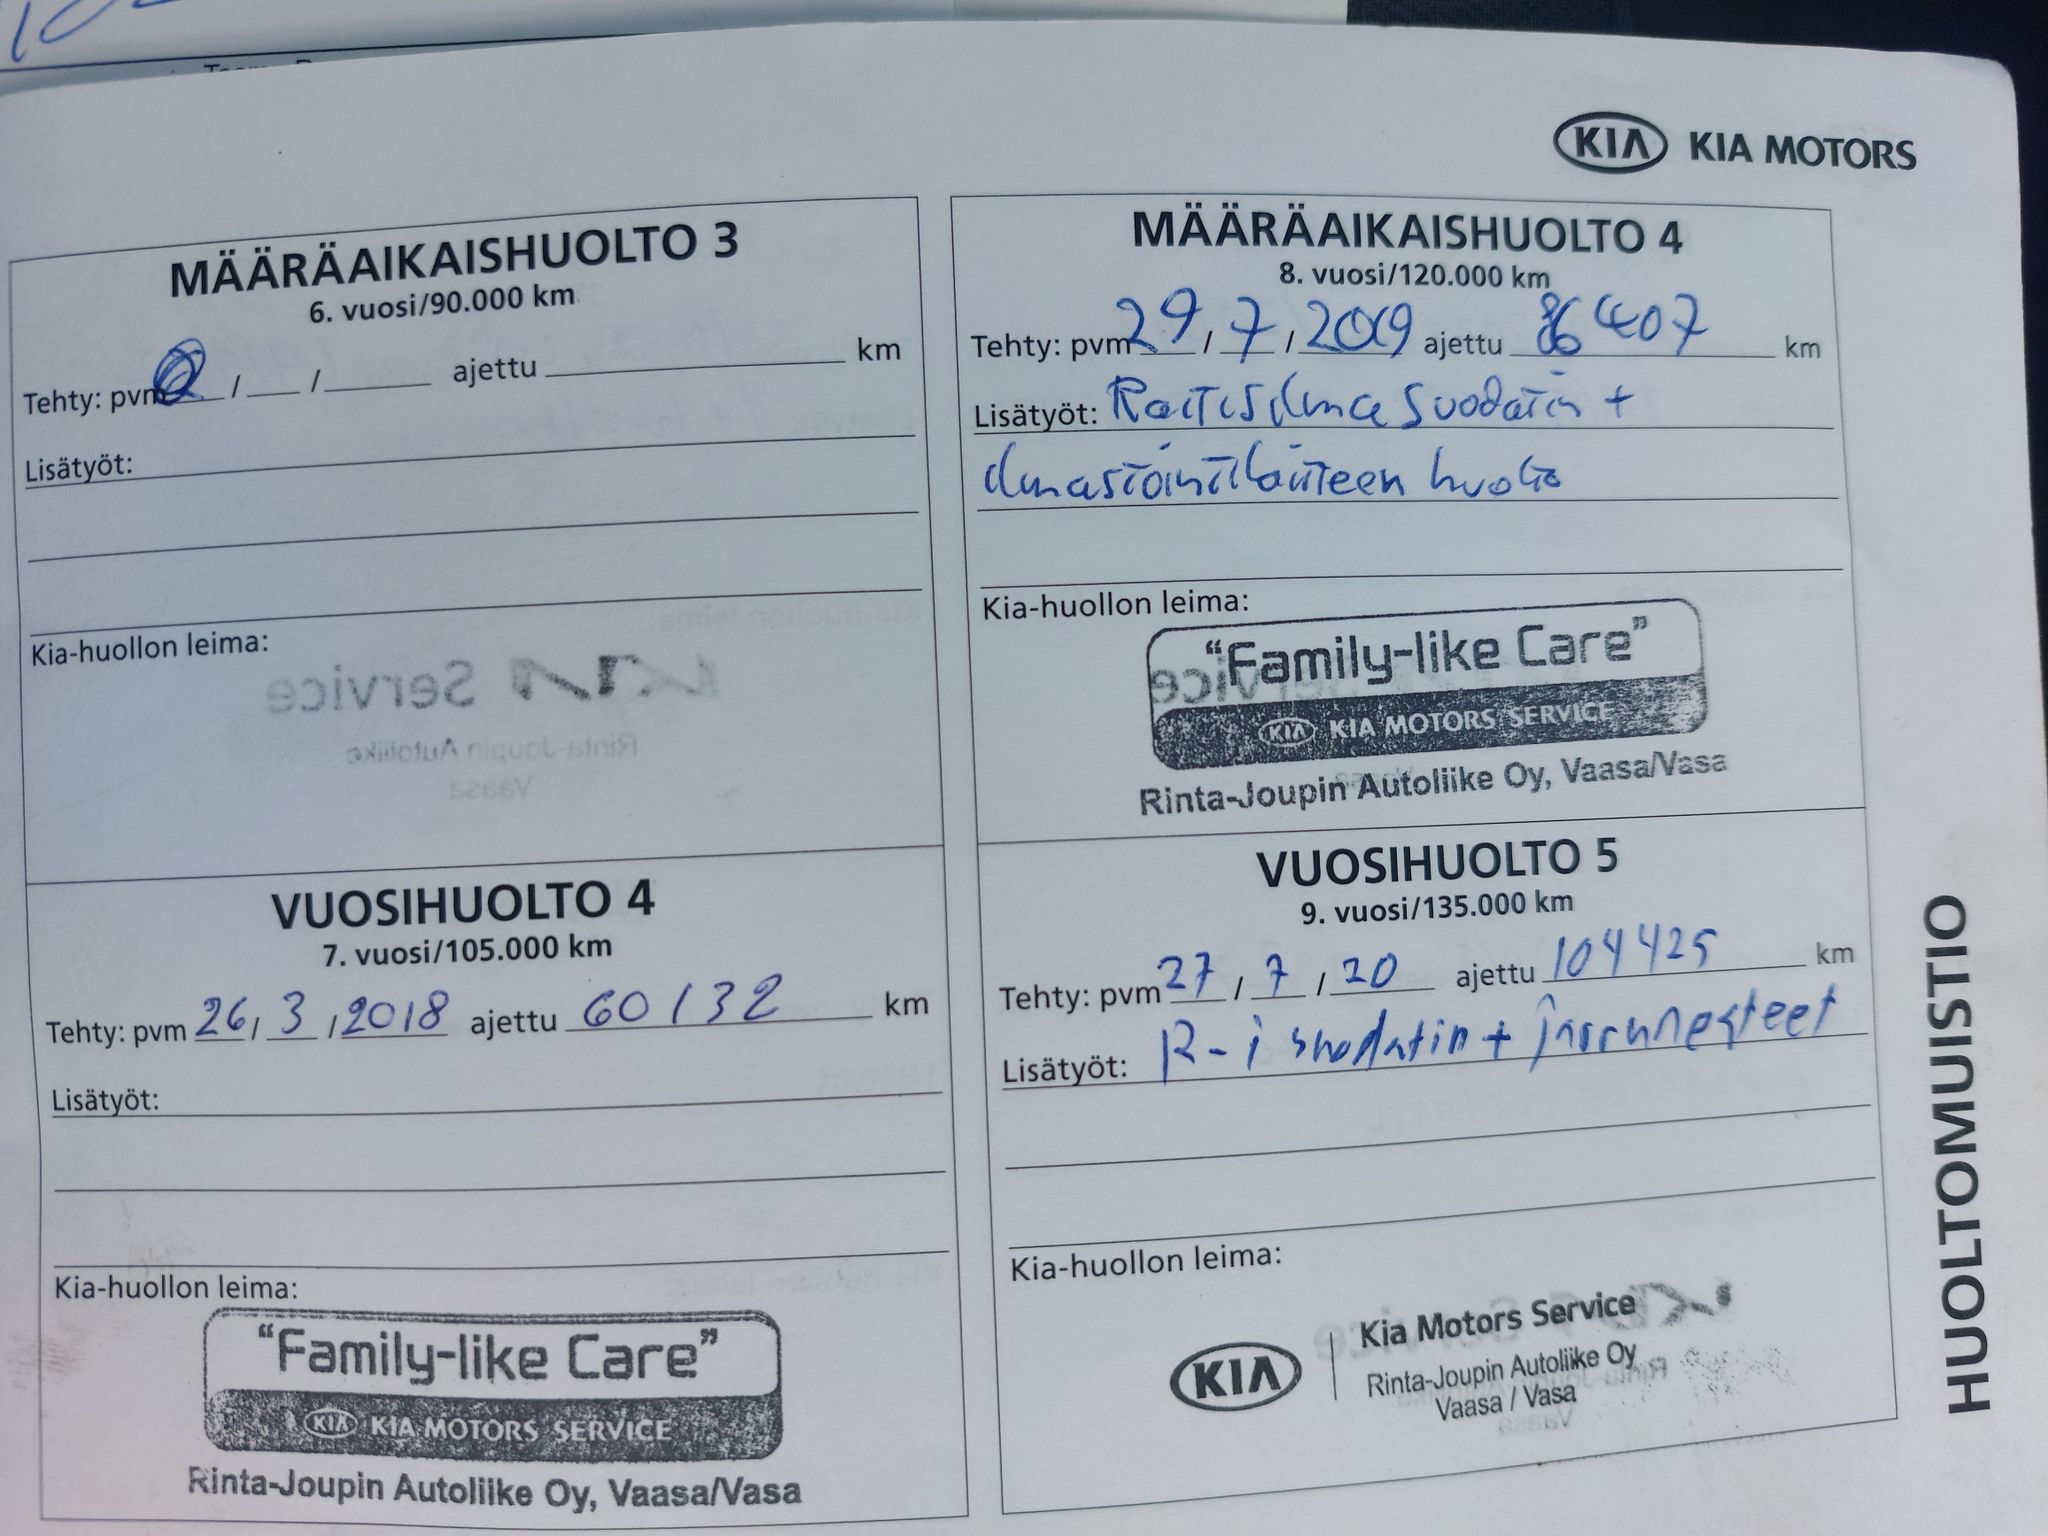 KIA KIA MOTORS
MÄÄRÄAIKAISHUOLTO 3
6. vuosi/90.000 km
Tehty: pvm / / ajettu km
Lisätyöt:
Kia-huollon leima:
VUOSIHUOLTO 4
7. vuosi/105.000 km
Tehty: pvm 26/3/2018 ajettu 60132 km
Lisätyöt:
Kia-huollon leima:
"Family-like Care"
KIA KIA MOTORS SERVICE
Rinta-Joupin Autoliike Oy, Vaasa/Vasa
MÄÄRÄAIKAISHUOLTO 4
8. vuosi/120.000 km
Tehty: pvm 29/7/2019 ajettu 86407 km
Lisätyöt: Raitisilmasuodatin +
ilmastointilaitteen huolto
Kia-huollon leima:
"Family-like Care"
KIA KIA MOTORS SERVICE
Rinta-Joupin Autoliike Oy, Vaasa/Vasa
VUOSIHUOLTO 5
9. vuosi/135.000 km
Tehty: pvm 27/7/20 ajettu 104425 km
Lisätyöt: R-i suodatin + jarrunesteet
Kia-huollon leima:
KIA Kia Motors Service
Rinta-Joupin Autoliike Oy
Vaasa / Vasa
HUOLTOMUISTIO